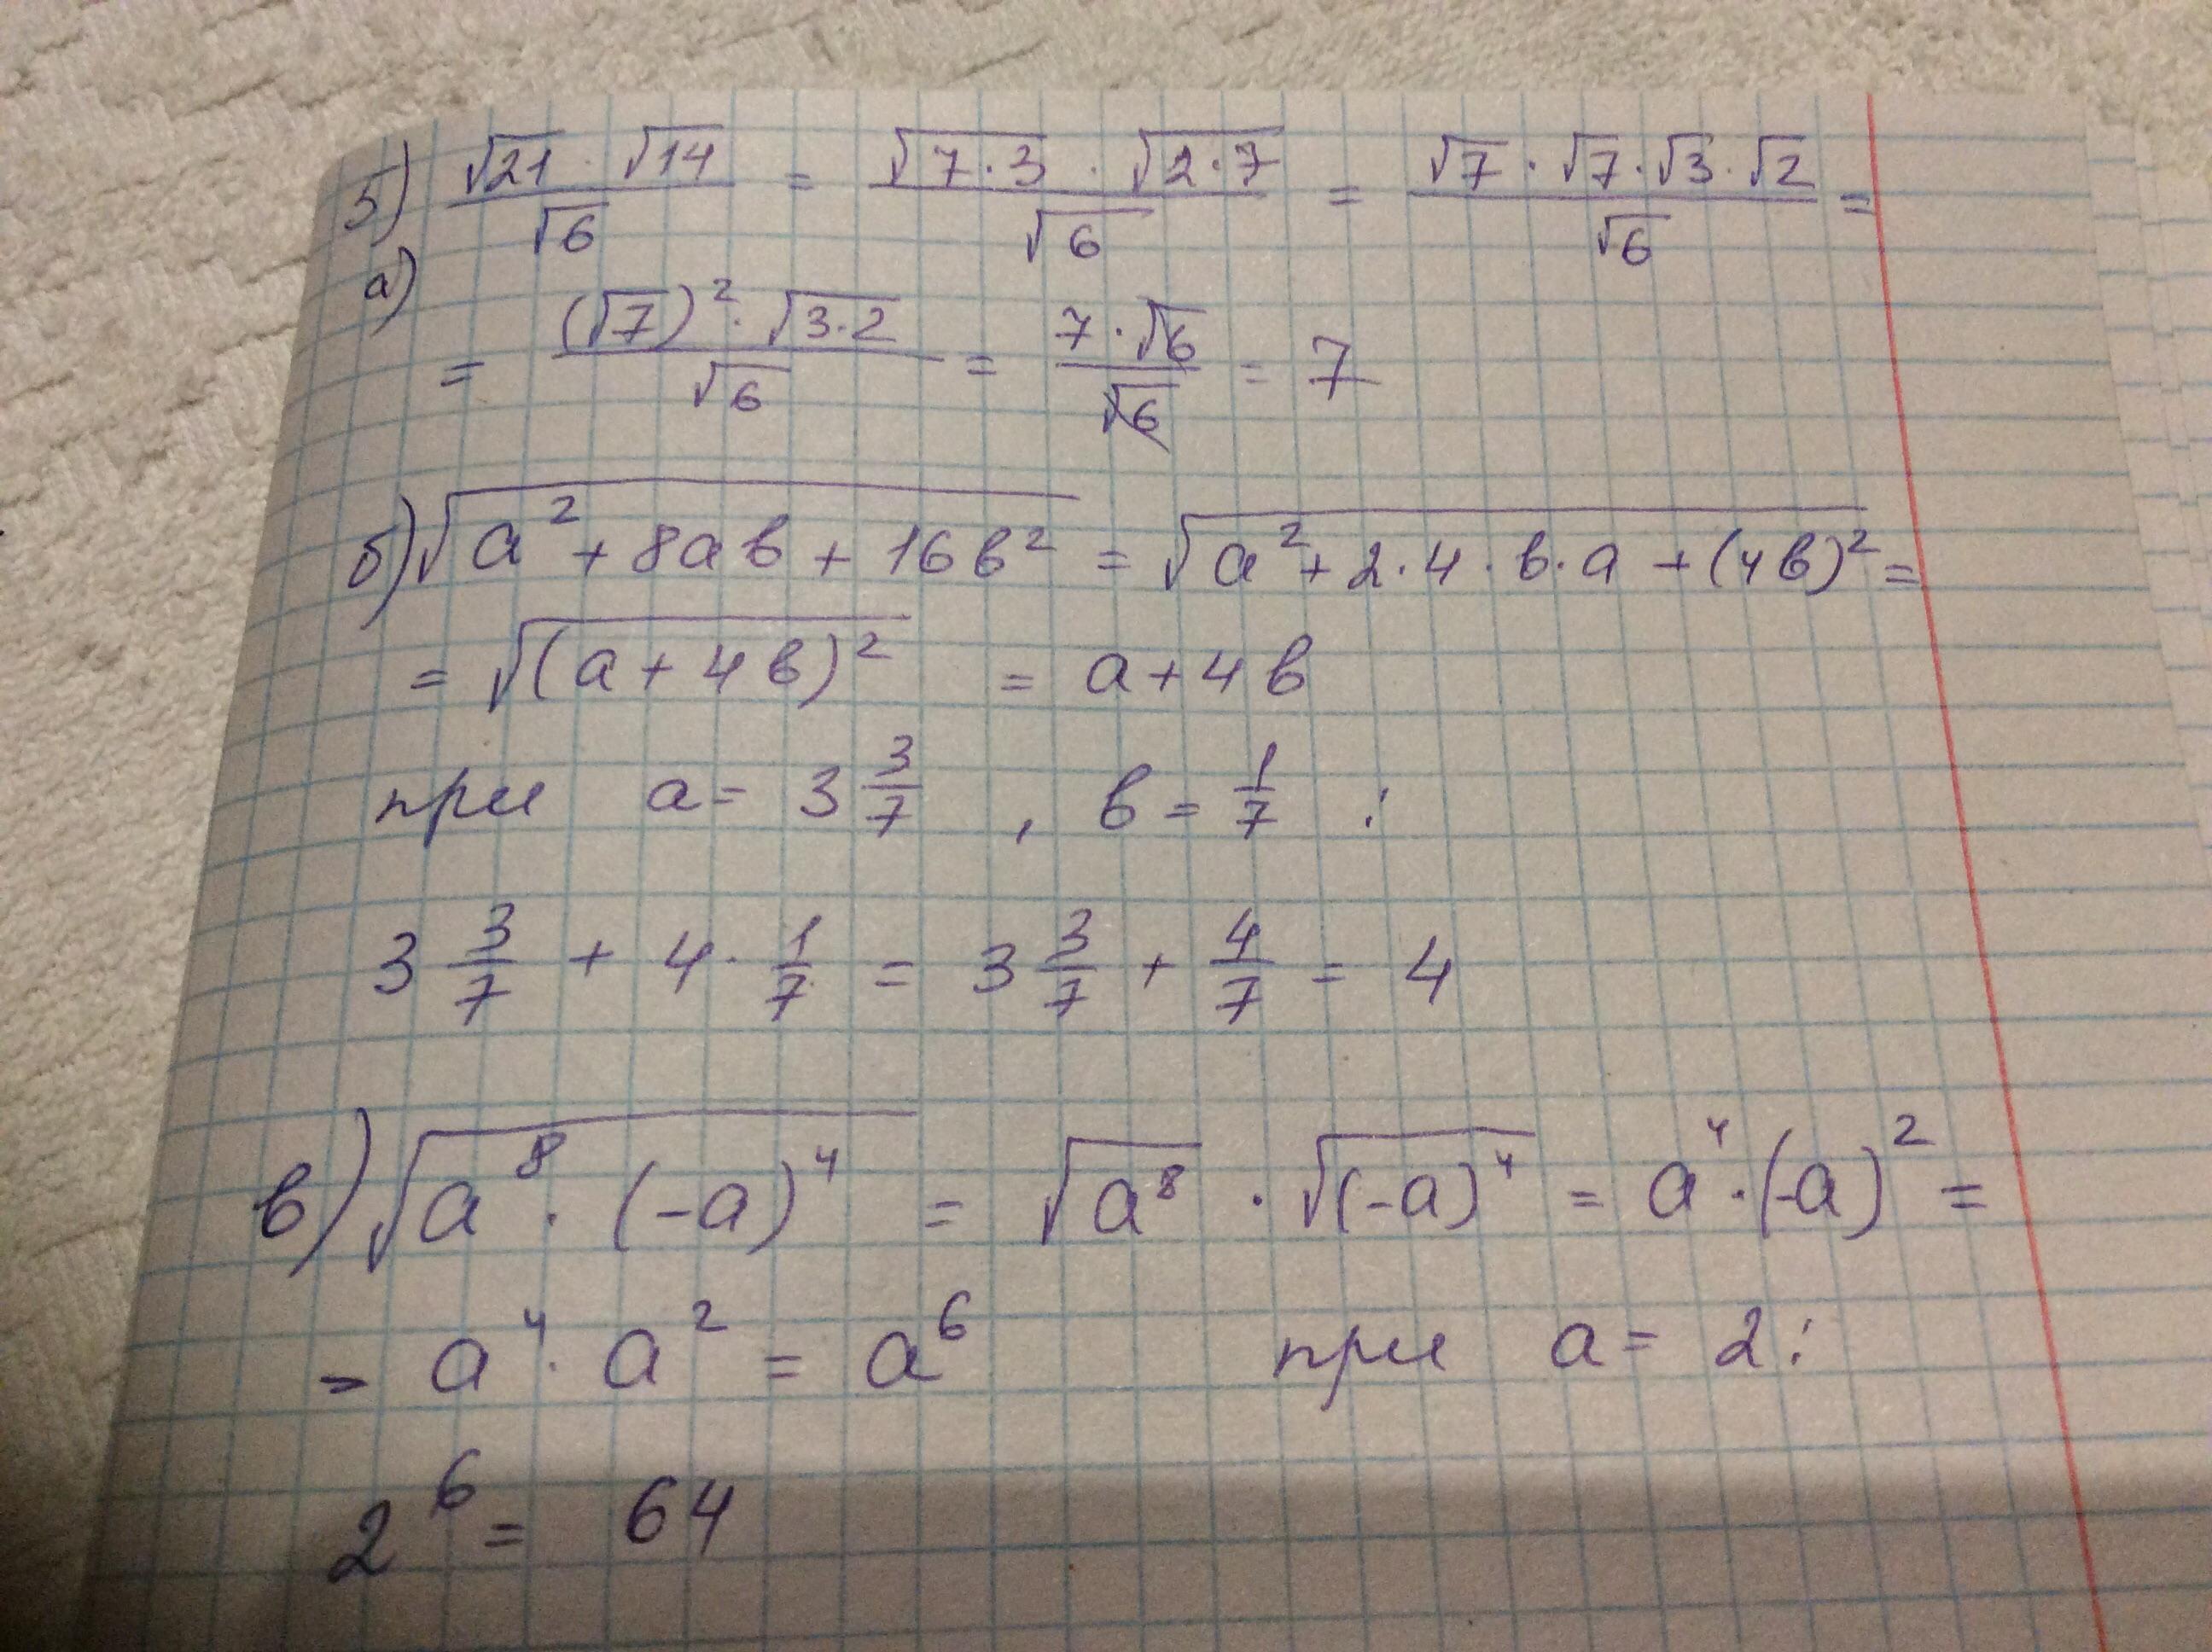 5) √21 · √14 / √6 = √7·3 · √2·7 / √6 = √7 · √7 · √3 · √2 / √6 =
а) = (√7)² · √3·2 / √6 = 7 · √6 / √6 = 7
б) √a² + 8aв + 16в² = √a² + 2·4·в·a + (4в)² =
= √(a + 4в)² = a + 4в
при a = 3 3/7 , в = 1/7 :
3 3/7 + 4 · 1/7 = 3 3/7 + 4/7 = 4
в) √a⁸ · (-a)⁴ = √a⁸ · √(-a)⁴ = a⁴ · (-a)² =
= a⁴ · a² = a⁶ при a = 2 :
2⁶ = 64